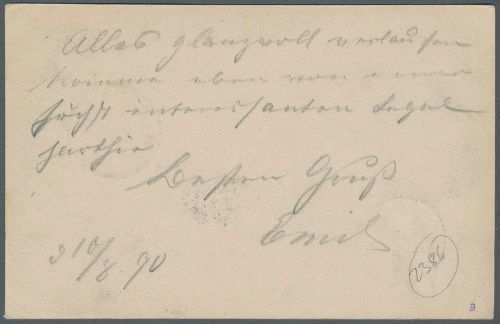 Alles glanzvoll verlaufen
komme eben von einer
höchst interessanten Segel
parthie
Besten Gruß
Emil
d 10/8. 90
2386
a